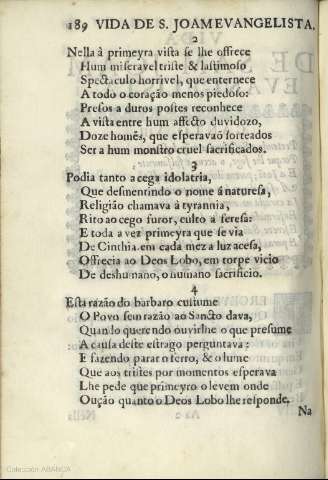 189 VIDA DE S. JOAM EVANGELISTA.
2
Nella â primeyra vista se lhe offrece
Hum miseravel triste & lastimoso
Spectaculo horrivel, que enternece
A todo o coração menos piedoso:
Presos a duros postes reconhece
A vista entre hum affecto duvidozo,
Doze homẽs, que esperavaõ sorteados
Ser a hum monstro cruel sacrificados.
3
Podia tanto a cega idolatria,
Que desmentindo o nome á naturesa,
Religião chamava á tyrannia,
Rito ao cego furor, culto a feresa:
E toda a vez primeyra que se via
De Cinthia em cada mez a luz acesa,
Offrecia ao Deos Lobo, em torpe vicio
De deshumano, o humano sacrificio.
4
Esta razão do barbaro custume
O Povo sem razão ao Sancto dava,
Quando querendo ouvirlhe o que presume
A causa deste estrago perguntava:
E fazendo parar o ferro, & o lume
Que aos tristes por momentos esperava
Lhe pede que primeyro o levem onde
Oução quanto o Deos Lobo lhe responde.
Na
Colección ABANCA